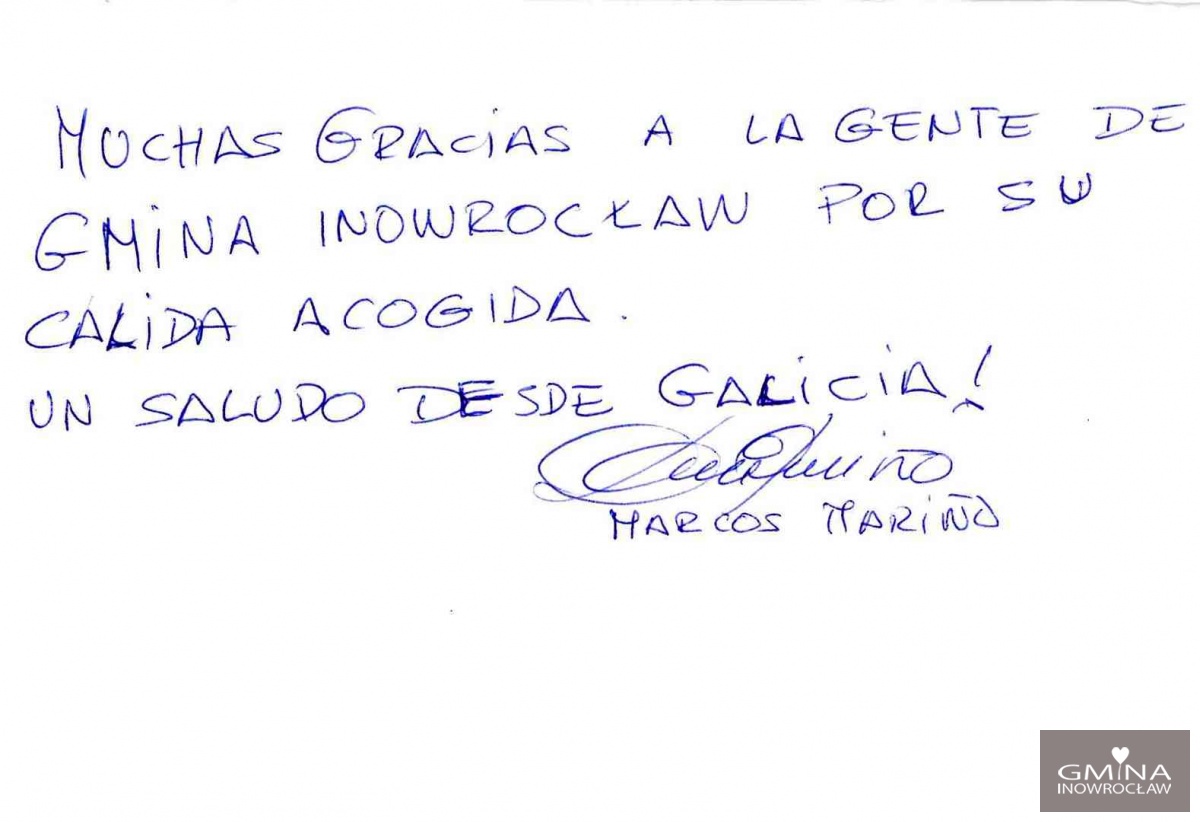 MUCHAS GRACIAS A LA GENTE DE
GMINA INOWROCŁAW POR SU
CALIDA ACOGIDA.
UN SALUDO DESDE GALICIA!
MARCOS MARIÑO
GMINA
INOWROCŁAW